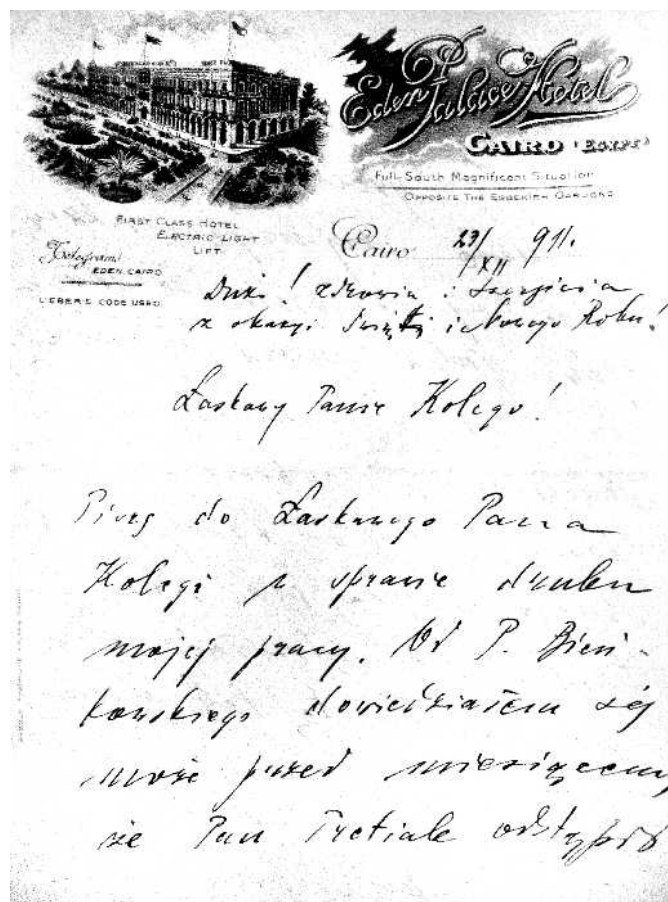 Eden Palace Hotel
CAIRO (EGYPT)
Full South Magnificent Situation
OPPOSITE THE ESBEKIEH GARDENS
FIRST CLASS HOTEL
ELECTRIC-LIGHT
LIFT
Telegrams
EDEN, CAIRO
LIEBER'S CODE USED
Cairo 23/XII 911.
Dużo! zdrowia i szczęścia
z okazyi Świąt i Nowego Roku!
Łaskawy Panie Kolego!
Piszę do Łaskawego Pana
Kolegi w sprawie druku
mojej pracy. Od P. Bień-
kowskiego dowiedziałem się
może przed miesiącem,
że Pan Tretiak odstąpił